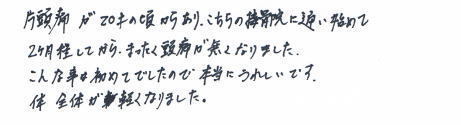 片頭痛が20才の頃からあり、こちらの接骨院に通い始めて
2ヶ月程してから、まったく頭痛が無くなりました。
こんな事は初めてでしたので本当にうれしいです。
体全体が軽くなりました。